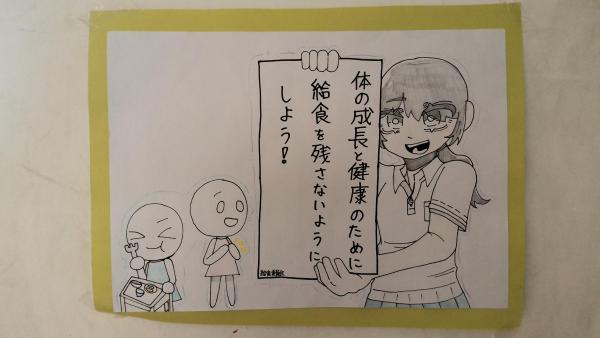 体の成長と健康のために
給食を残さないように
しよう!